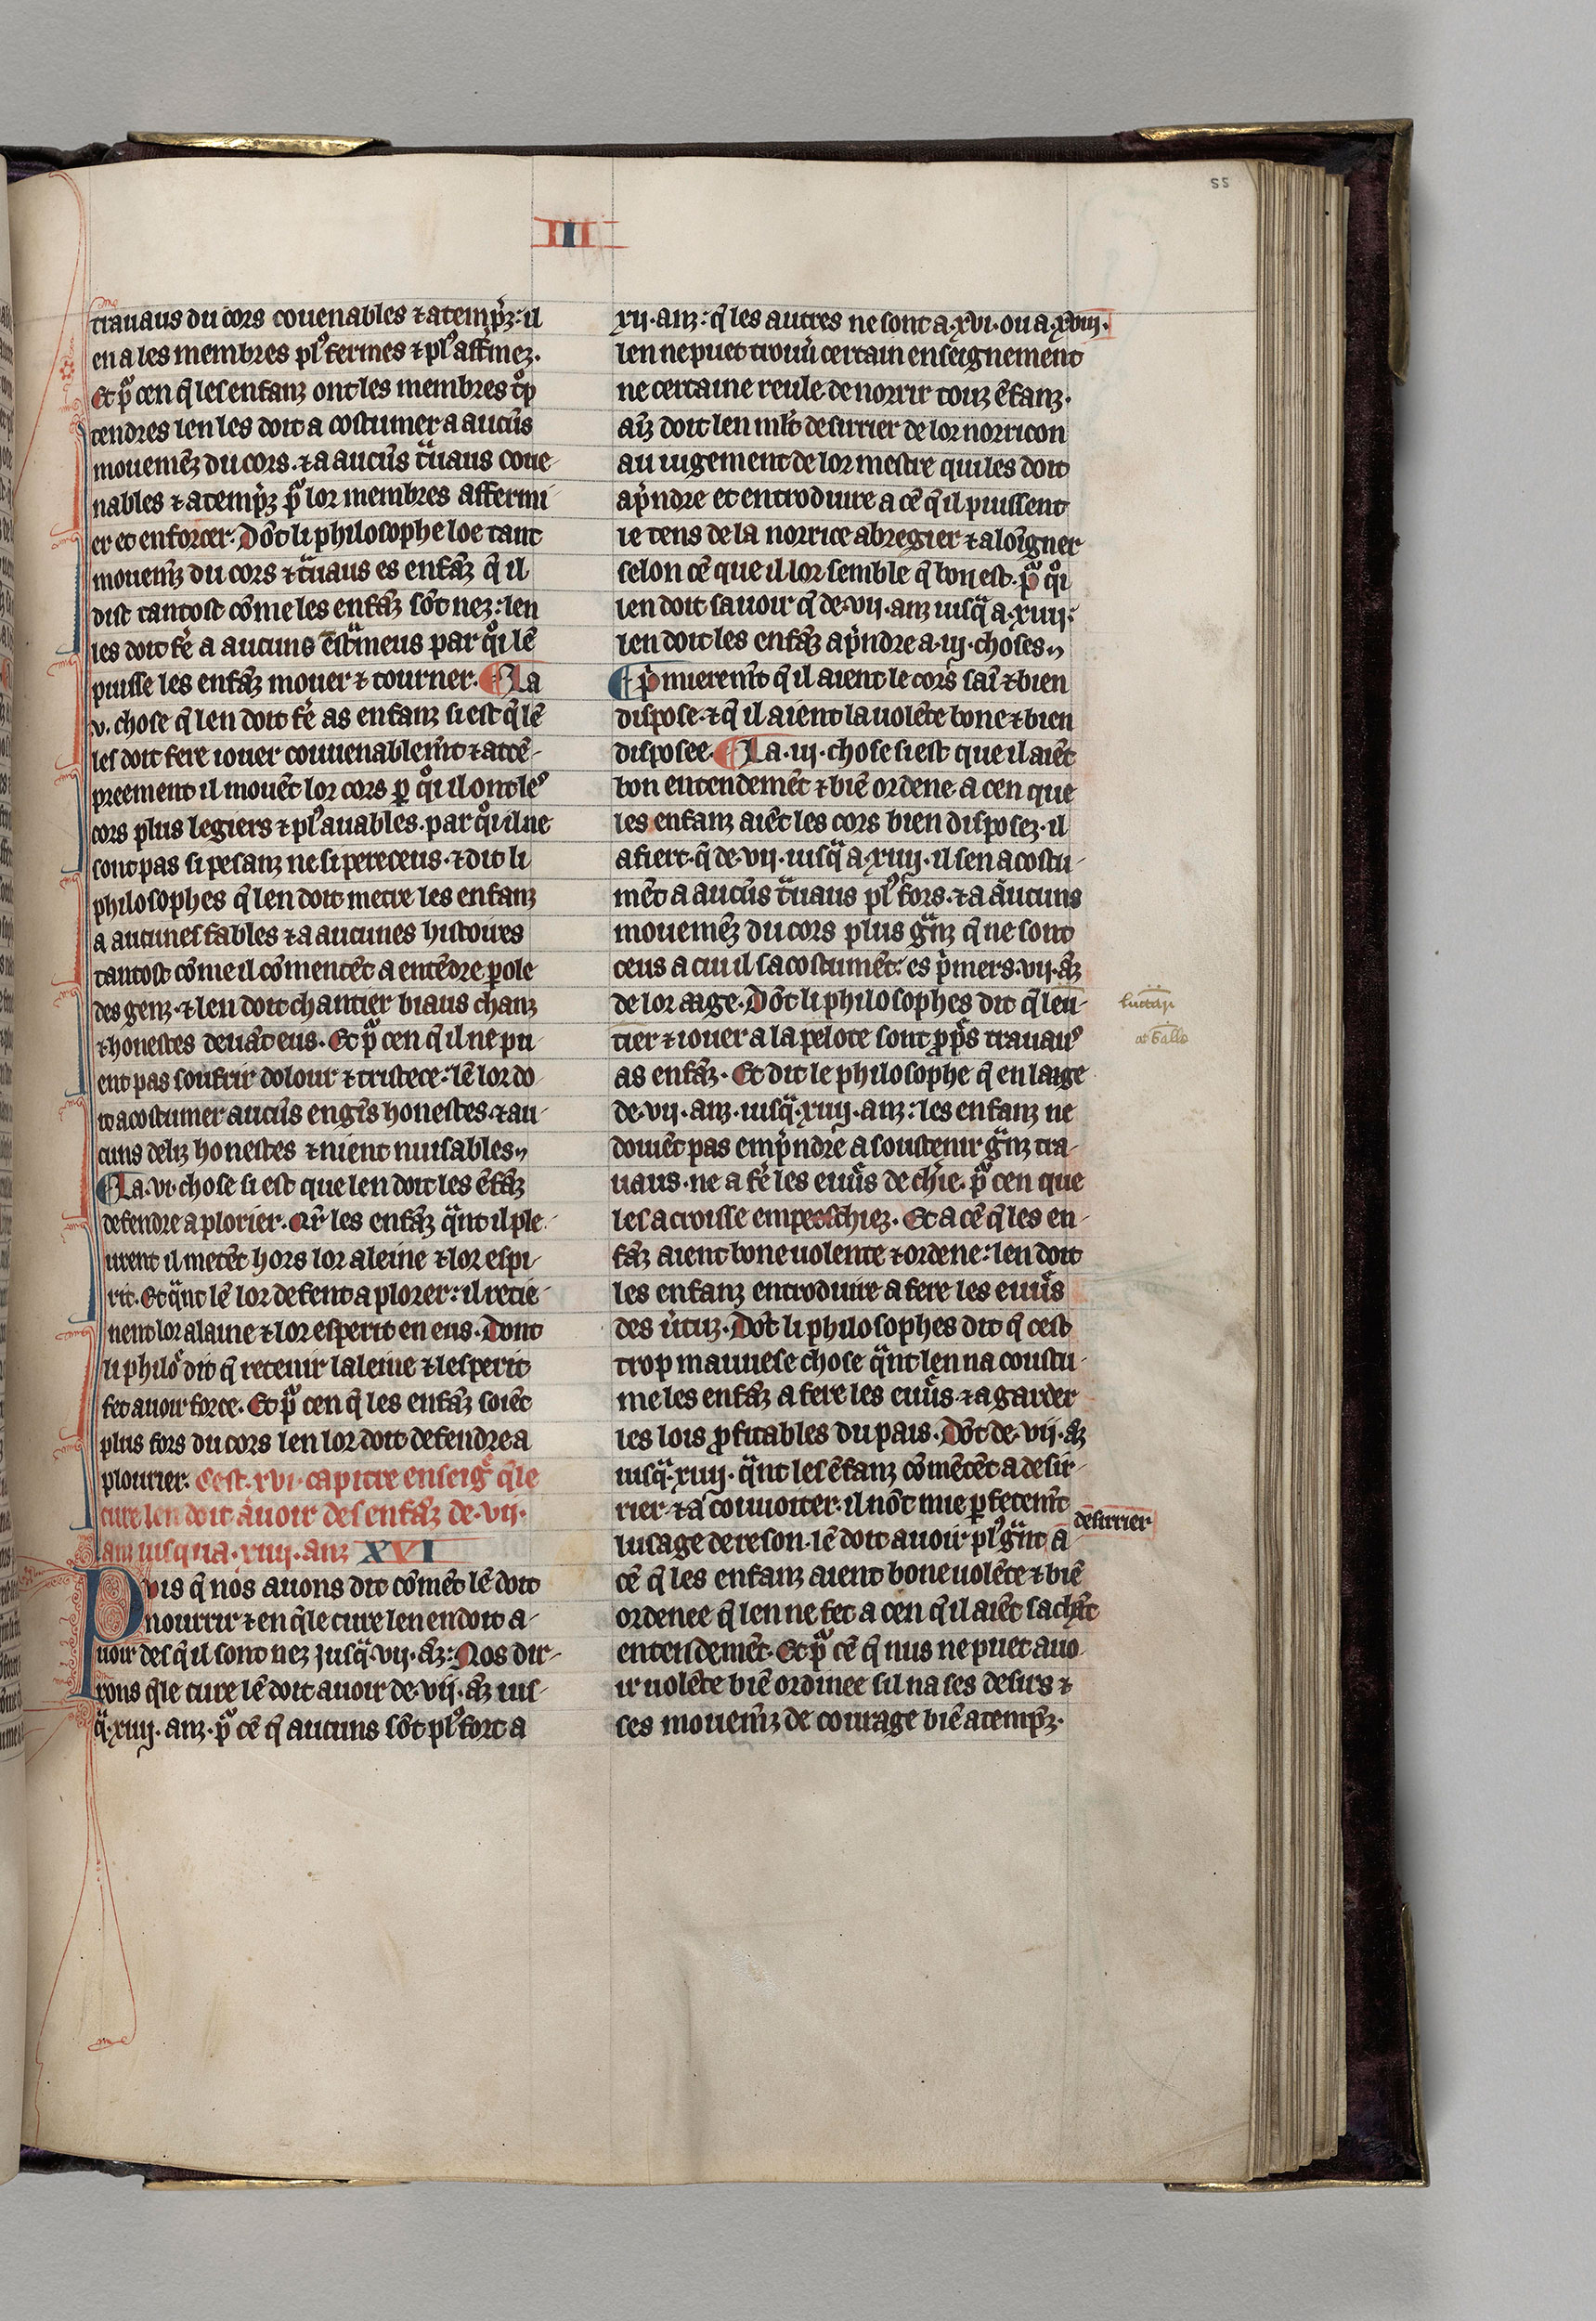 55
III
trauaus du cors couenables ⁊ atemprez: il
en a les membres plꝰ fermes ⁊ plꝰ affinez.
Et pͣ cen q̄ les enfanz ont les membres trop
tendres len les doit a costumer a aucūs
mouemēz du cors. ⁊ a aucūs tͣuaus coue-
nables ⁊ atempͥz pͣ lor membres affermi-
er et enforcer. Dōt li philosophe loe tant
mouemz̄ du cors ⁊ tͣuaus es enfāz q̄ il
dist tantost cōme les enfāz sōt nez: len
les doit fēꝛ a aucuns estͣmens par qͦi lē
puisse les enfāz mouer ⁊ tourner. ¶ La
.v. chose q̄ len doit fēꝛ as enfanz si est q̄ lē
les doit fere iouer couuenablemt̄ ⁊ attē-
preement il mouēt lor cors ꝑ qͦi il ont leꝰ
cors plus legiers ⁊ plꝰ auables. par qͦi il ne
sont pas si pesanz ne si pereceus. ⁊ dit li
philosophes q̄ len doit metre les enfanz
a aucunes fables ⁊ a aucunes histoires
tantost cōme il cōmencēt a entēdre ꝑole
des genz. ⁊ len doit chantier biaus chanz
⁊ honestes deuāt eus. Et pͣ cen q̄ il ne pu-
ent pas soufrir dolour ⁊ tristece: lē lor do-
it acostumer aucūs engīs honestes. ⁊ au-
cuns deliz honestes ⁊ nient nuisables.
¶ La .vi. chose si est que len doit les ēfāz
defendre a plorier. Qͬ les enfāz qͣnt il ple-
urent il metēt hors lor aleine ⁊ lor espi-
rit. Et qͣnt lē lor defent a plorer: il retie-
nent lor alaine ⁊ lor esperit en eus. Dont
li philoͤ dit q̄ retenir laleine ⁊ lesperit
fet auoir force. Et pͣ cen q̄ les enfāz soiēt
plus fors du cors len lor doit defendre a
plourier. Cest .xvi. capitre enseig̃ q̄le
cure len doit auoir des enfāz de .vii.
anz iusqua .xiiii. anz XVI
Puis q̄ nos auons dit cōmēt lē doit
nourrir ⁊ en q̄le cure len en doit a-
uoir des q̄ il sont nez jusqͣ .vii. āz: Nos dir-
rons q̄le cure lē doit auoir de .vii. āz ius-
qͣ .xiiii. anz. pͣ cē q̄ aucuns sōt plꝰ fort a
xii. anz: q̄ les autres ne sont a .xvi. ou a .xviii.
len ne puet trouuͬ certain enseignement
ne certaine reule de norrir touz ēfanz.
aīz doit len mlt̄ desirrier de lor norricon
au iugement de lor mestre qui les doit
apͥndre et entroduire a cē q̄ il puissent
le tens de la norrice abregier ⁊ aloīgner
selon cē que il lor semble q̄ bon est. pͣ qͦi
len doit sauoir q̄ de .vii. anz iusqͣ a .xiiii.
len doit les enfāz apͥndre a .iii. choses.
¶ pͥmieremt̄ q̄ il aient le cors saī ⁊ bien
dispose. ⁊ q̄ il aient la uolēte bone ⁊ bien
disposee. ¶ La .iii. chose si est que il aiēt
bon entendemēt ⁊ biē ordene a cen que
les enfanz aiēt les cors bien disposez. il
afiert. q̄ de .vii. iusqͣ a .xiiii. il sen acostu-
mēt a aucūs tͣuaus plꝰ fors. ⁊ a aucuns
mouemēz du cors plus gͣnz q̄ ne sont
ceus a cui il sacostumēt: es pͥmers .vii. āz
de lor aage. Dōt li philosophes dit q̄ leu-
tier ⁊ iouer a la pelote sont ꝓpͤs trauauꝰ
as enfāz. Et dit le philosophe q̄ en laage
de .vii. anz. iusqͣ .xiiii. anz: les enfanz ne
doiuēt pas empͥndre a soustenir gͣnz tra-
uaus. ne a fēꝛ les euuͤs de chͥe. pͣ cen que
les acroisse empeeschiez. Et a cē q̄ les en-
fāz aient bone uolente ⁊ ordene: len doit
les enfanz entroduire a fere les euuͤs
des uͥtuz. Dōt li philosophes dit q̄ cest
trop mauuese chose qͣnt len na coustu-
me les enfāz a fere les euuͤs. ⁊ a garder
les lois ꝓfitables du pais. Dōt de .vii. āz
iusqͣ .xiiii. qͣnt les ēfanz cōmēcēt a desir-
rier. ⁊ a couuoitier. il nōt mie ꝑfetemt̄
lusage de reson. lē doit auoir plꝰ gͣnt a
cē q̄ les enfanz aient bone uolēte ⁊ biē
ordenee q̄ len ne fet a cen q̄ il aiēt sachāt
entendemēt. Et pͣ cē q̄ nus ne puet auo-
ir uolēte biē ordinee sil na ses desirs ⁊
ses mouemz̄ de courage biē atempͥz.
luctari
at balle
desirrier